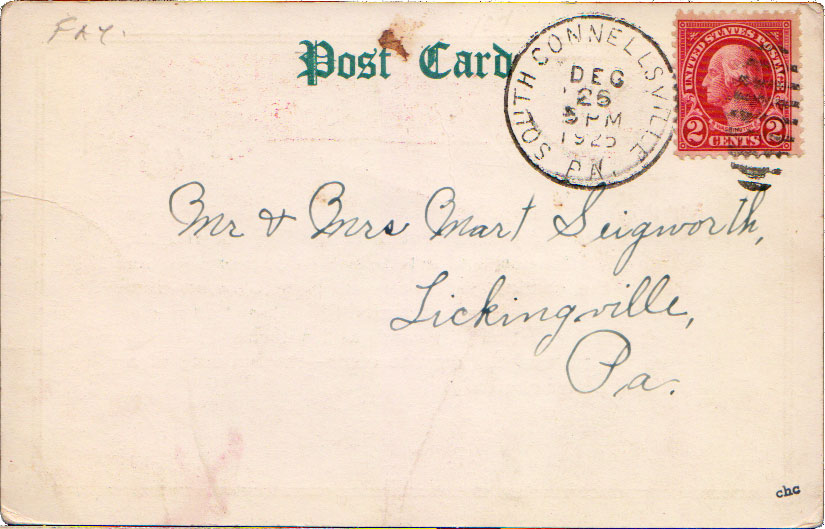 FAY.
Post Card
SOUTH CONNELLSVILLE
DEC
26
5 PM
1925
PA.
UNITED STATES POSTAGE
2 CENTS 2
Mr & Mrs Mart Seigworth,
Lickingville,
Pa.
chc